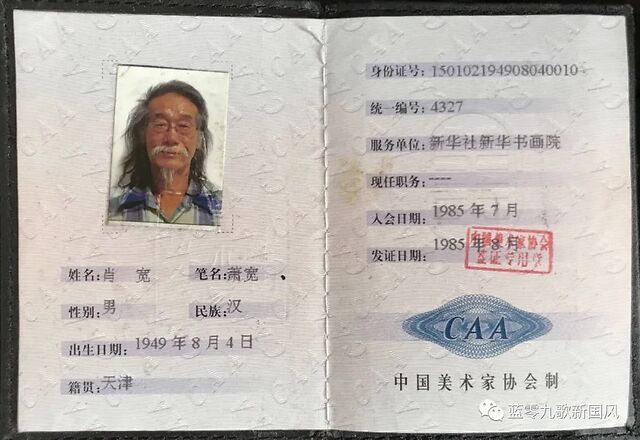 姓名:肖 宽 笔名:萧宽
性别:男 民族:汉
出生日期:1949年8月4日
籍贯:天津
身份证号:150102194908040010
统一编号:4327
服务单位:新华社新华书画院
现任职务:----
入会日期:1985年7月
发证日期:1985年8月
中国美术家协会
签证专用章
CAA
中国美术家协会制
蓝零九歌新国风